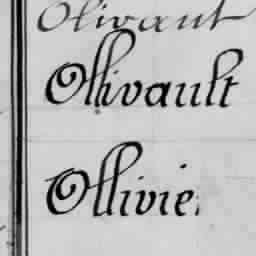 Olivant
Ollivault
Ollivie